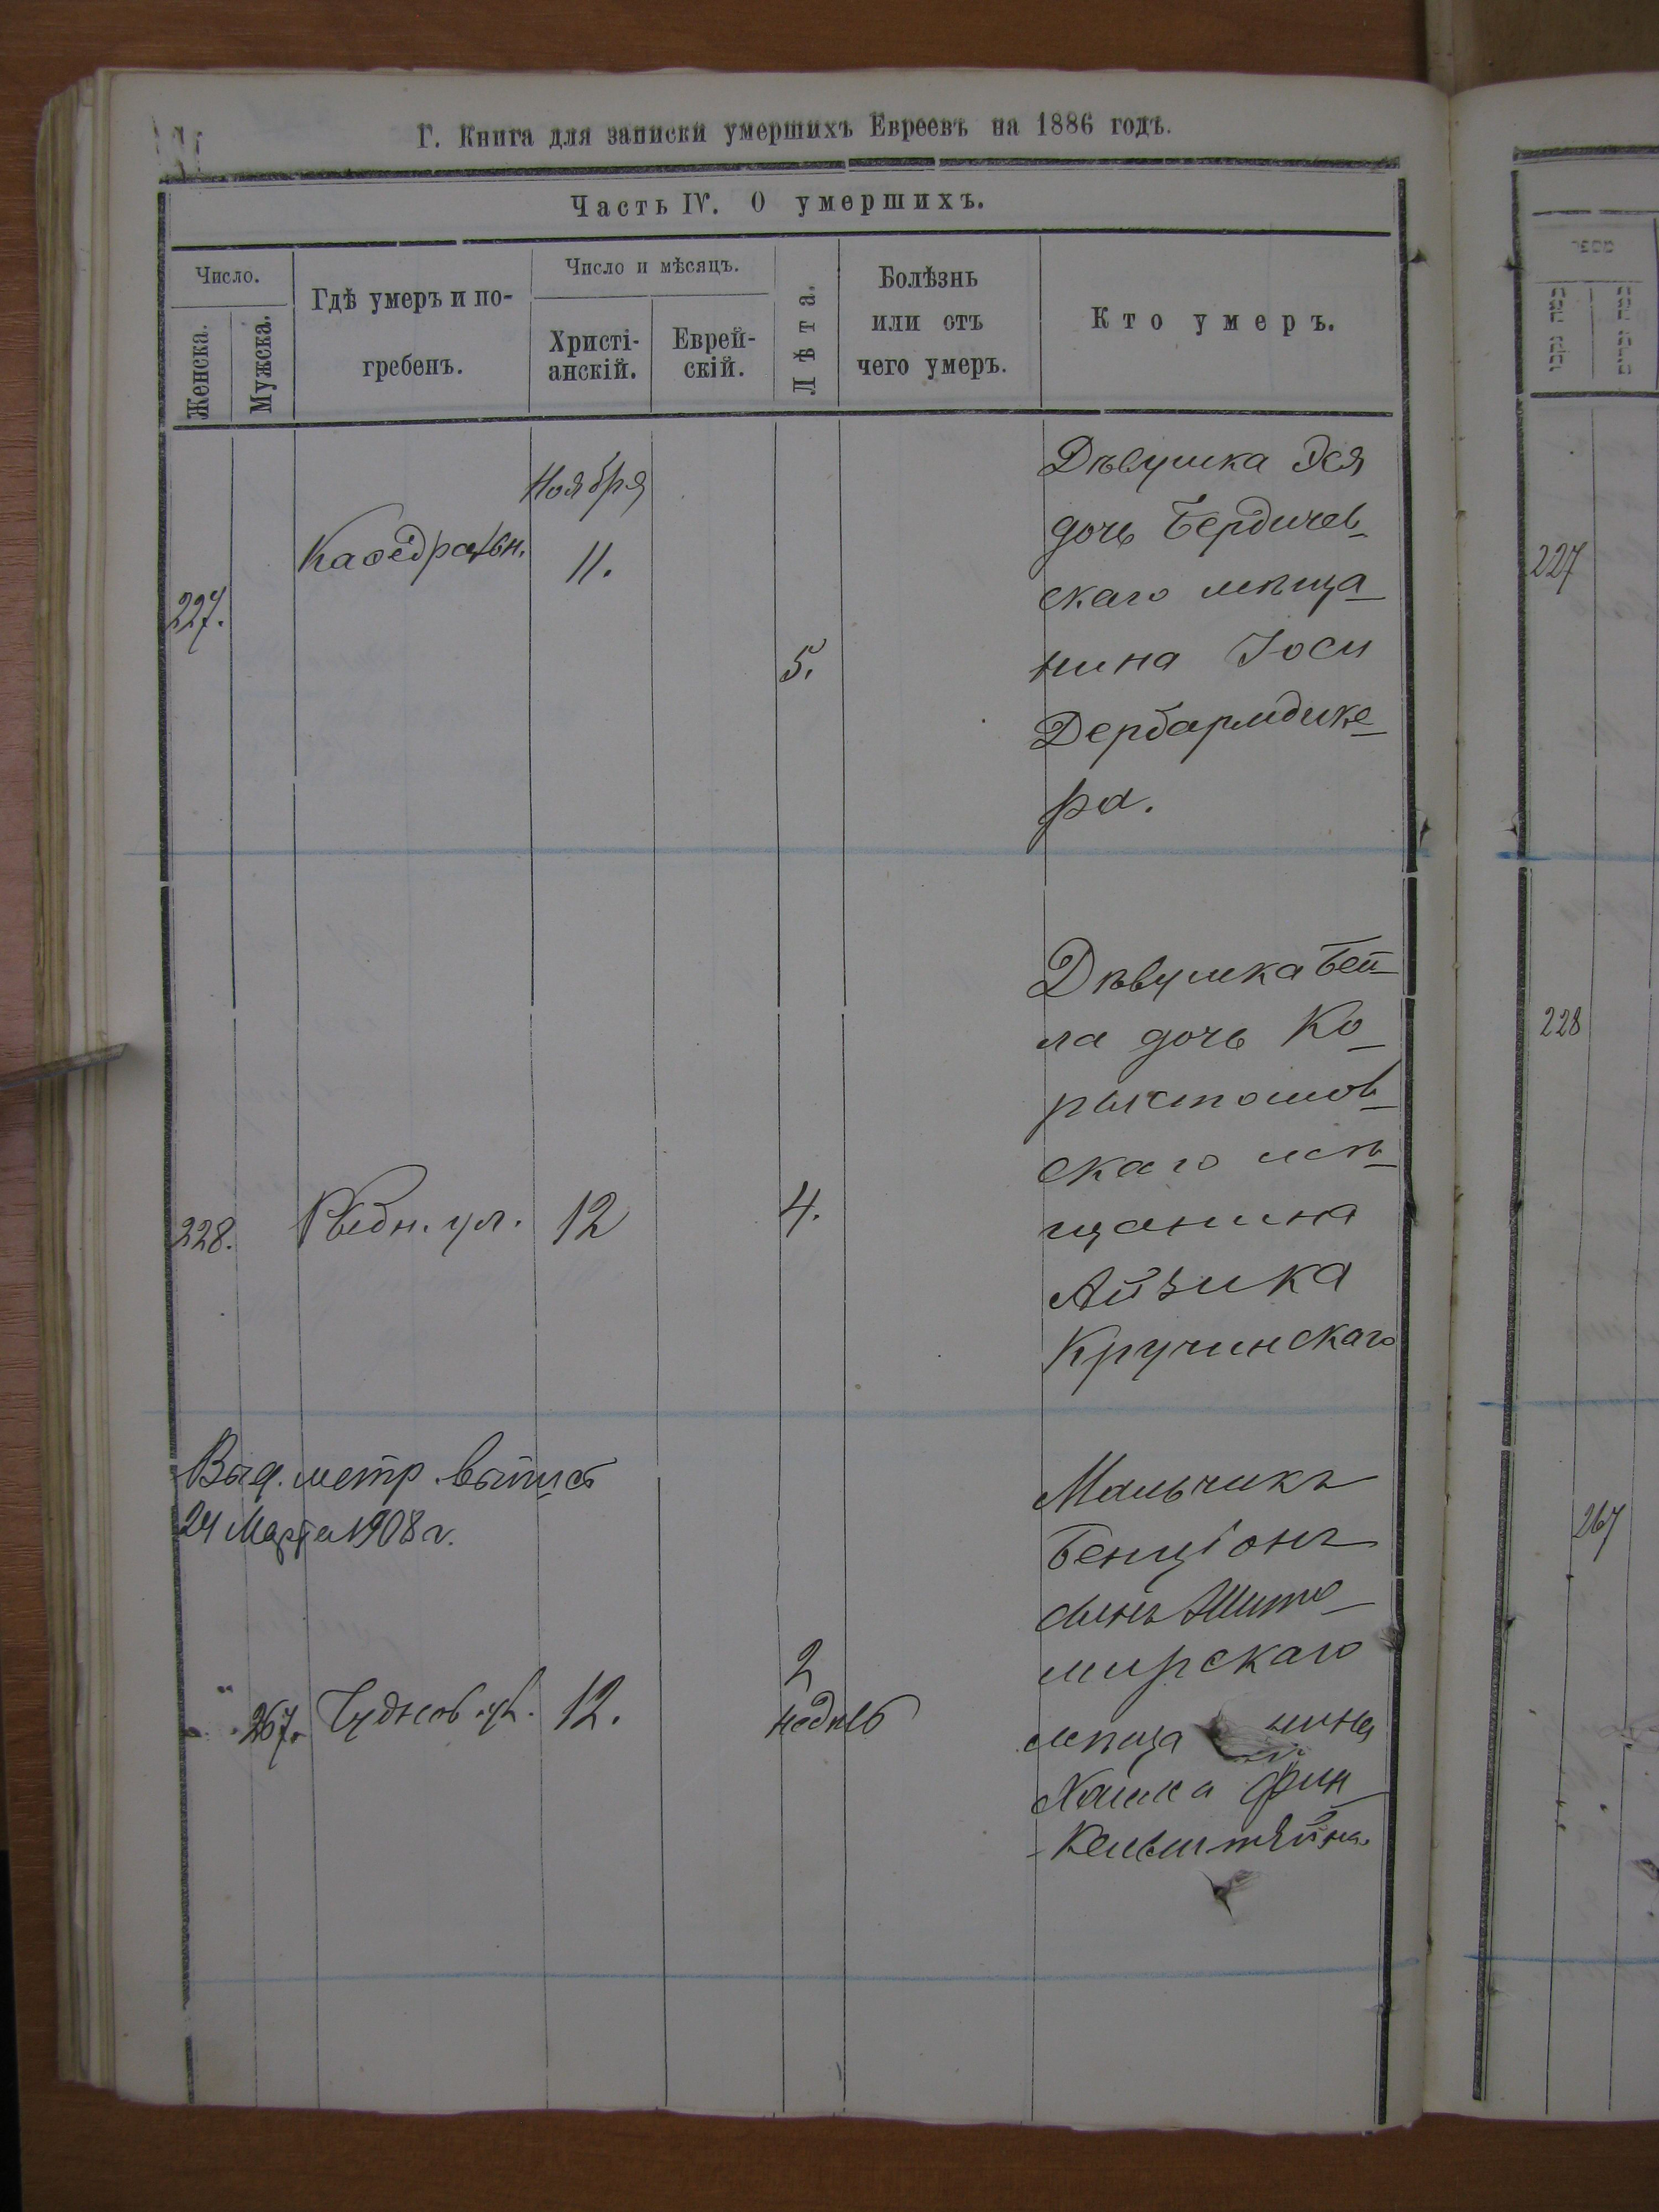 Г. Книга для записки умершихъ Евреевъ на 1886 годъ.
Часть IV. О умершихъ.
Число.
Женска.
Мужска.
Гдѣ умеръ и по-
гребенъ.
Число и мѣсяцъ.
Христі-
анскій.
Еврей-
скій.
Лѣта.
Болѣзнь
или отъ
чего умеръ.
Кто умеръ.
227.
Каѳедральн.
Ноября
11.
5.
Дѣвушка Эся
дочь Бердичев-
скаго мѣща-
нина Іоси
Дербармдике-
ра.
228.
Рыбн. ул.
12
4.
Дѣвушка Бей-
ла дочь Ко-
рыстошов-
скаго мѣ-
щанина
Айзика
Кручинскаго
Выд. метр. выпись
24 Марта 1908 г.
267.
Чуднов. ул.
12.
2
недѣль
Мальчикъ
Бенціонъ
сынъ Жито-
мирскаго
мѣща нина
Хаима Фин-
кельштейна.
227
228
267